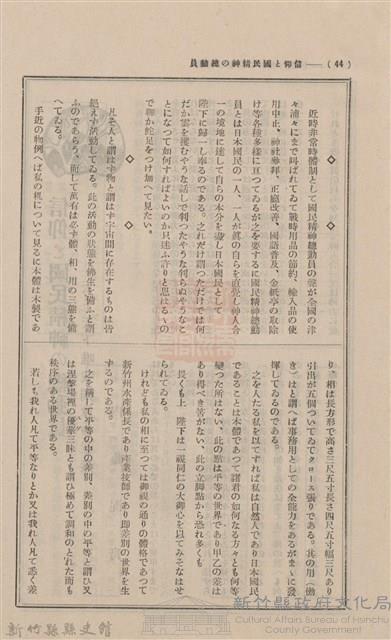 (44)——信仰と國民精神の總動員
◇　◇　◇
近時非常時體制として國民精神總動員の聲が全國の津
々浦々にまで叫ばれてゐて戰時用品の節約、輸入品の使
用中止、神社參拜、正廳改善、國語普及、金紙亭の取除
け等各種多樣に亘つてゐるが之を要するに國民精神總動
員とは日本國民の一人、一人が眞の自らを直覺し神人合
一の境地に達して自らの本分を盡し日本國民として
陛下に歸一し奉るのである。之れだけ謂つただけでは何
だか雲を摑むやうな話しで判つたやうな判らぬやうなこ
とになつて如何すればよいのか只迷ふ許りと思はるゝの
で聊か蛇足をつけ加へて見たい。
◇　◇
凡そ人と謂はず物と謂はず宇宙間に存在するものは皆
絶えず活動してゐる。此の活動の狀態を佛生を備ふと謂
ふのであらう、而して萬有は必ず體、相、用の三態を備
へてゐる。
手近の物例へば私の机について見るに本體は木製であ
り、相は長方形で高さ三尺五寸長さ四尺五寸幅三尺あり
引出が五個ついてゐてクロース張りである。其の用(働
き)はと謂へば事務用としての全能力をあるがまゝに發
揮してゐるのである。
之を人たる私を以てすれば私は自然人であり日本國民
であることは本體であつて諸君の如何なる方々とも何等
變つた所はない、此の點は平等の世界であり甲乙の差は
あり得べき筈がない、此の立脚點から恐れ多くも
畏くも上　陛下は一視同仁の大御心を以てみそなはせ
られてゐる。
けれども私の相に至つては御視の通りの體格であつて
新竹州水產係長であり產業技師であり即差別の世界を生
するのである。
之を稱して平等の中の差別、差別の中の平等と謂ひ又
は涅槃場裡の優遊三昧とも謂ひ極めて調和のとれた而も
秩序のある世界である。
若しも我れ人凡て平等なりとか又は我れ人凡て悉く差
新竹縣縣史館
新竹縣政府文化局
Cultural Affairs Bureau of Hsinchu
County Government